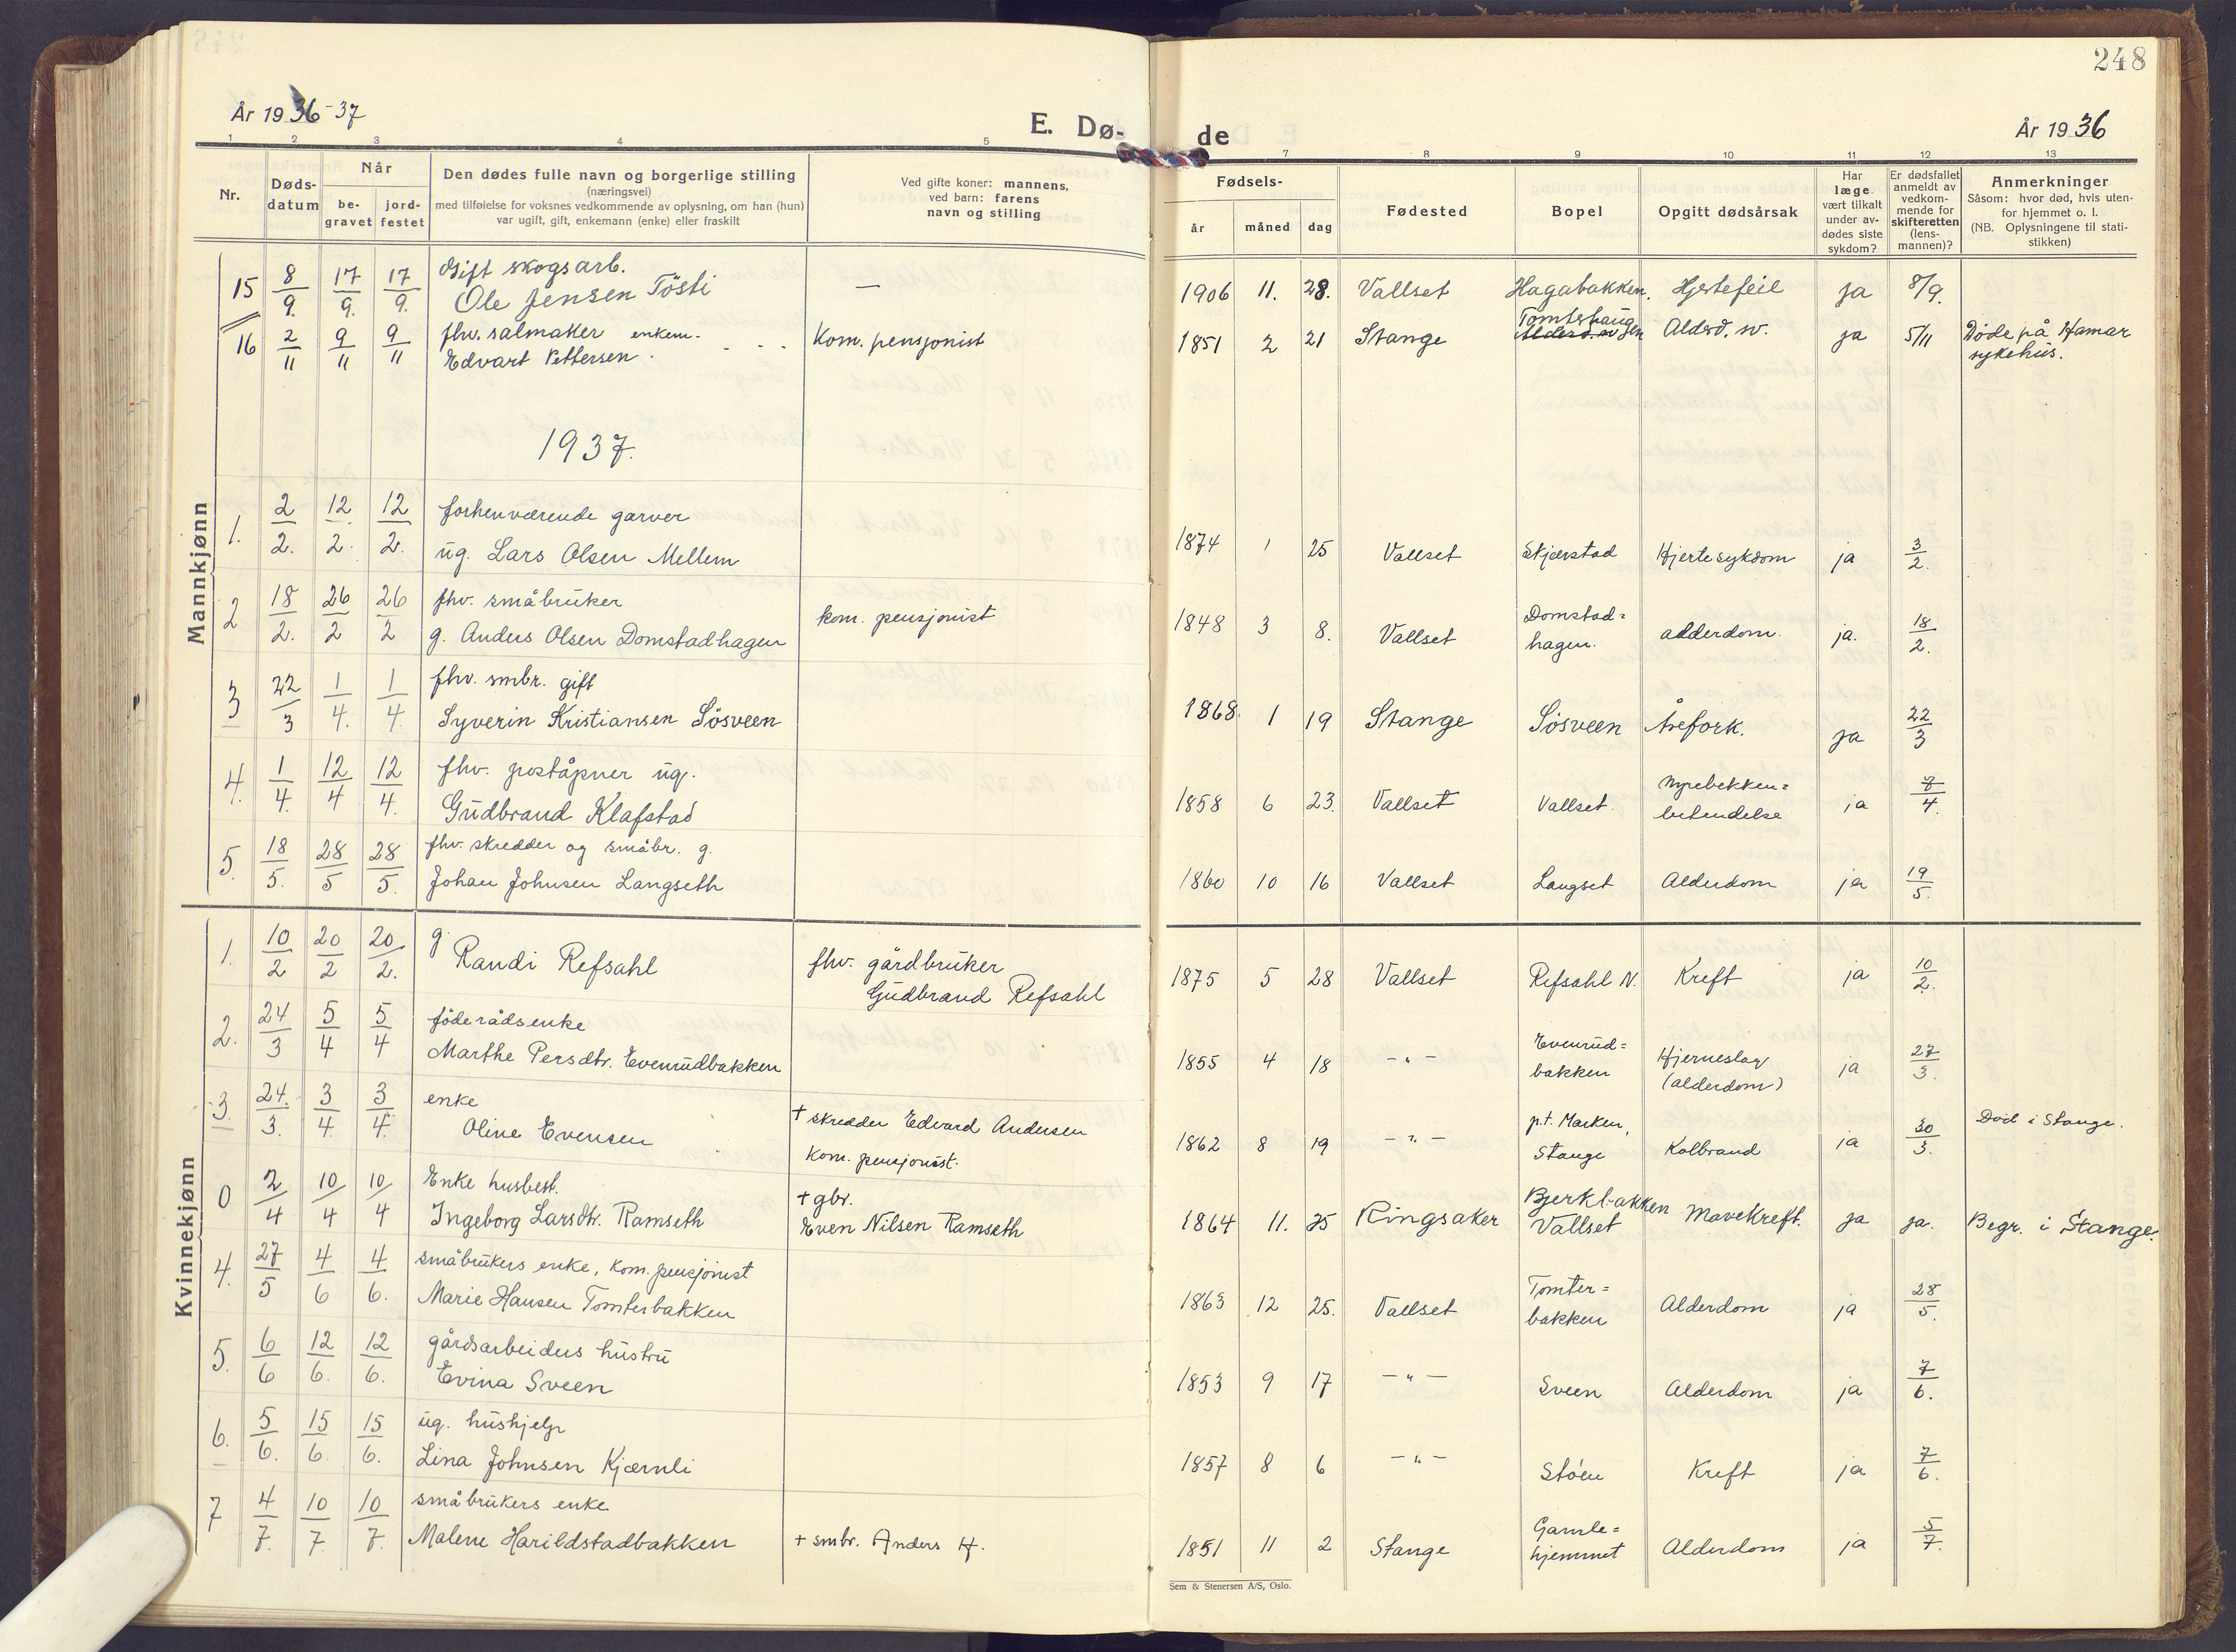 248
År 1936-37
E. Dø-
de
År 1936
1 2 3 4 5 7 8 9 10 11 12 13
Nr.
Døds-
datum
Når
be-
gravet
jord-
festet
Den dødes fulle navn og borgerlige stilling
(næringsvei)
med tilføielse for voksnes vedkommende av oplysning, om han (hun)
var ugift, gift, enkemann (enke) eller fraskilt
Ved gifte koner: mannens,
ved barn: farens
navn og stilling
Fødsels-
år måned dag
Fødested
Bopel
Opgitt dødsårsak
Har
læge
vært tilkalt
under av-
dødes siste
sykdom?
Er dødsfallet
anmeldt av
vedkom-
mende for
skifteretten
(lens-
mannen)?
Anmerkninger
Såsom: hvor død, hvis uten-
for hjemmet o. l.
(NB. Oplysningene til stati-
stikken)
Mannkjønn
15 8/9. 17/9. 17/9. Gift skogsarb.
Ole Jensen Tösti — 1906 11. 28. Vallset Hagabakken. Hjertefeil ja 8/9.
16 2/11 9/11 9/11 fhv. salmaker enkem.
Edvart Pettersen. Kom. pensjonist 1851 2 21 Stange Tomterhaug Alderd. sv. ja 5/11 Døde på Hamar
sykehus.
1937.
1. 2/2. 12/2. 12/2. forhenværende garver
ug. Lars Olsen Mellem 1874 1 25 Vallset Skjerstad Hjertesykdom ja 3/2.
2 18/2. 26/2 26/2 fhv. småbruker
g. Anders Olsen Domstadhagen kom. pensjonist 1848 3 8. Vallset Domstad=
hagen. alderdom. ja. 18/2.
3 22/3 1/4. 1/4. fhv. smbr. gift
Syverin Kristiansen Sösveen 1868 1 19 Stange Sösveen Årefork. ja 22/3
4. 1/4. 12/4 12/4. fhv. poståpner ug.
Gudbrand Klafstad 1858 6 23. Vallset Vallset. Nyrebekken=
betendelse ja 7/4.
5. 18/5. 28/5 28/5. fhv. skredder og småbr. g.
Johan Johnsen Langseth 1860 10 16 Vallset Langset Alderdom ja 19/5.
Kvinnekjønn
1. 10/2 20/2 20/2. g.
Randi Refsahl fhv. gårdbruker
Gudbrand Refsahl 1875 5 28 Vallset Refsahl N. Kreft ja 10/2.
2. 24/3 5/4 5/4 föderådsenke
Marthe Persdtr. Evenrudbakken 1855 4 18 - " - Evenrud=
bakken Hjerneslag
(alderdom) ja 27/3.
3. 24./3. 3/4. 3/4. enke
Oline Evensen + skredder Edvard Andersen
Kom. pensjonist. 1862 8 19 - " - p.t. Marken,
Stange Kolbrand ja 30/3. Död i Stange.
0 2/4 10/4 10/4 Enke husbest.
Ingeborg Larsdtr. Ramseth + gbr.
Even Nilsen Ramseth 1864 11. 25 Ringsaker Bjerkbakken
Vallset Mavekreft. ja ja. Begr. i Stange.
4. 27/5 4/6 4/6. småbrukers enke, kom. pensjonist
Marie Hansen Tomterbakken 1863 12 25. Vallset Tomter=
bakken Alderdom ja 28/5.
5. 6/6 12/6. 12/6. gårdsarbeiders hustru
Evina Sveen 1853 9 17 - " - Sveen Alderdom ja 7/6.
6. 5/6. 15/6. 15/6. ug. hushjelp
Lina Johnsen Kjærnli 1857 8 6 - " - Støen Kreft ja 7/6.
7 4/7. 10/7. 10/7. småbrukers enke
Malene Harildstadbakken + smbr. Anders H. 1851 11 2 Stange Gamle=
hjemmet Alderdom ja 5/7.
Sem & Stenersen A/S, Oslo.